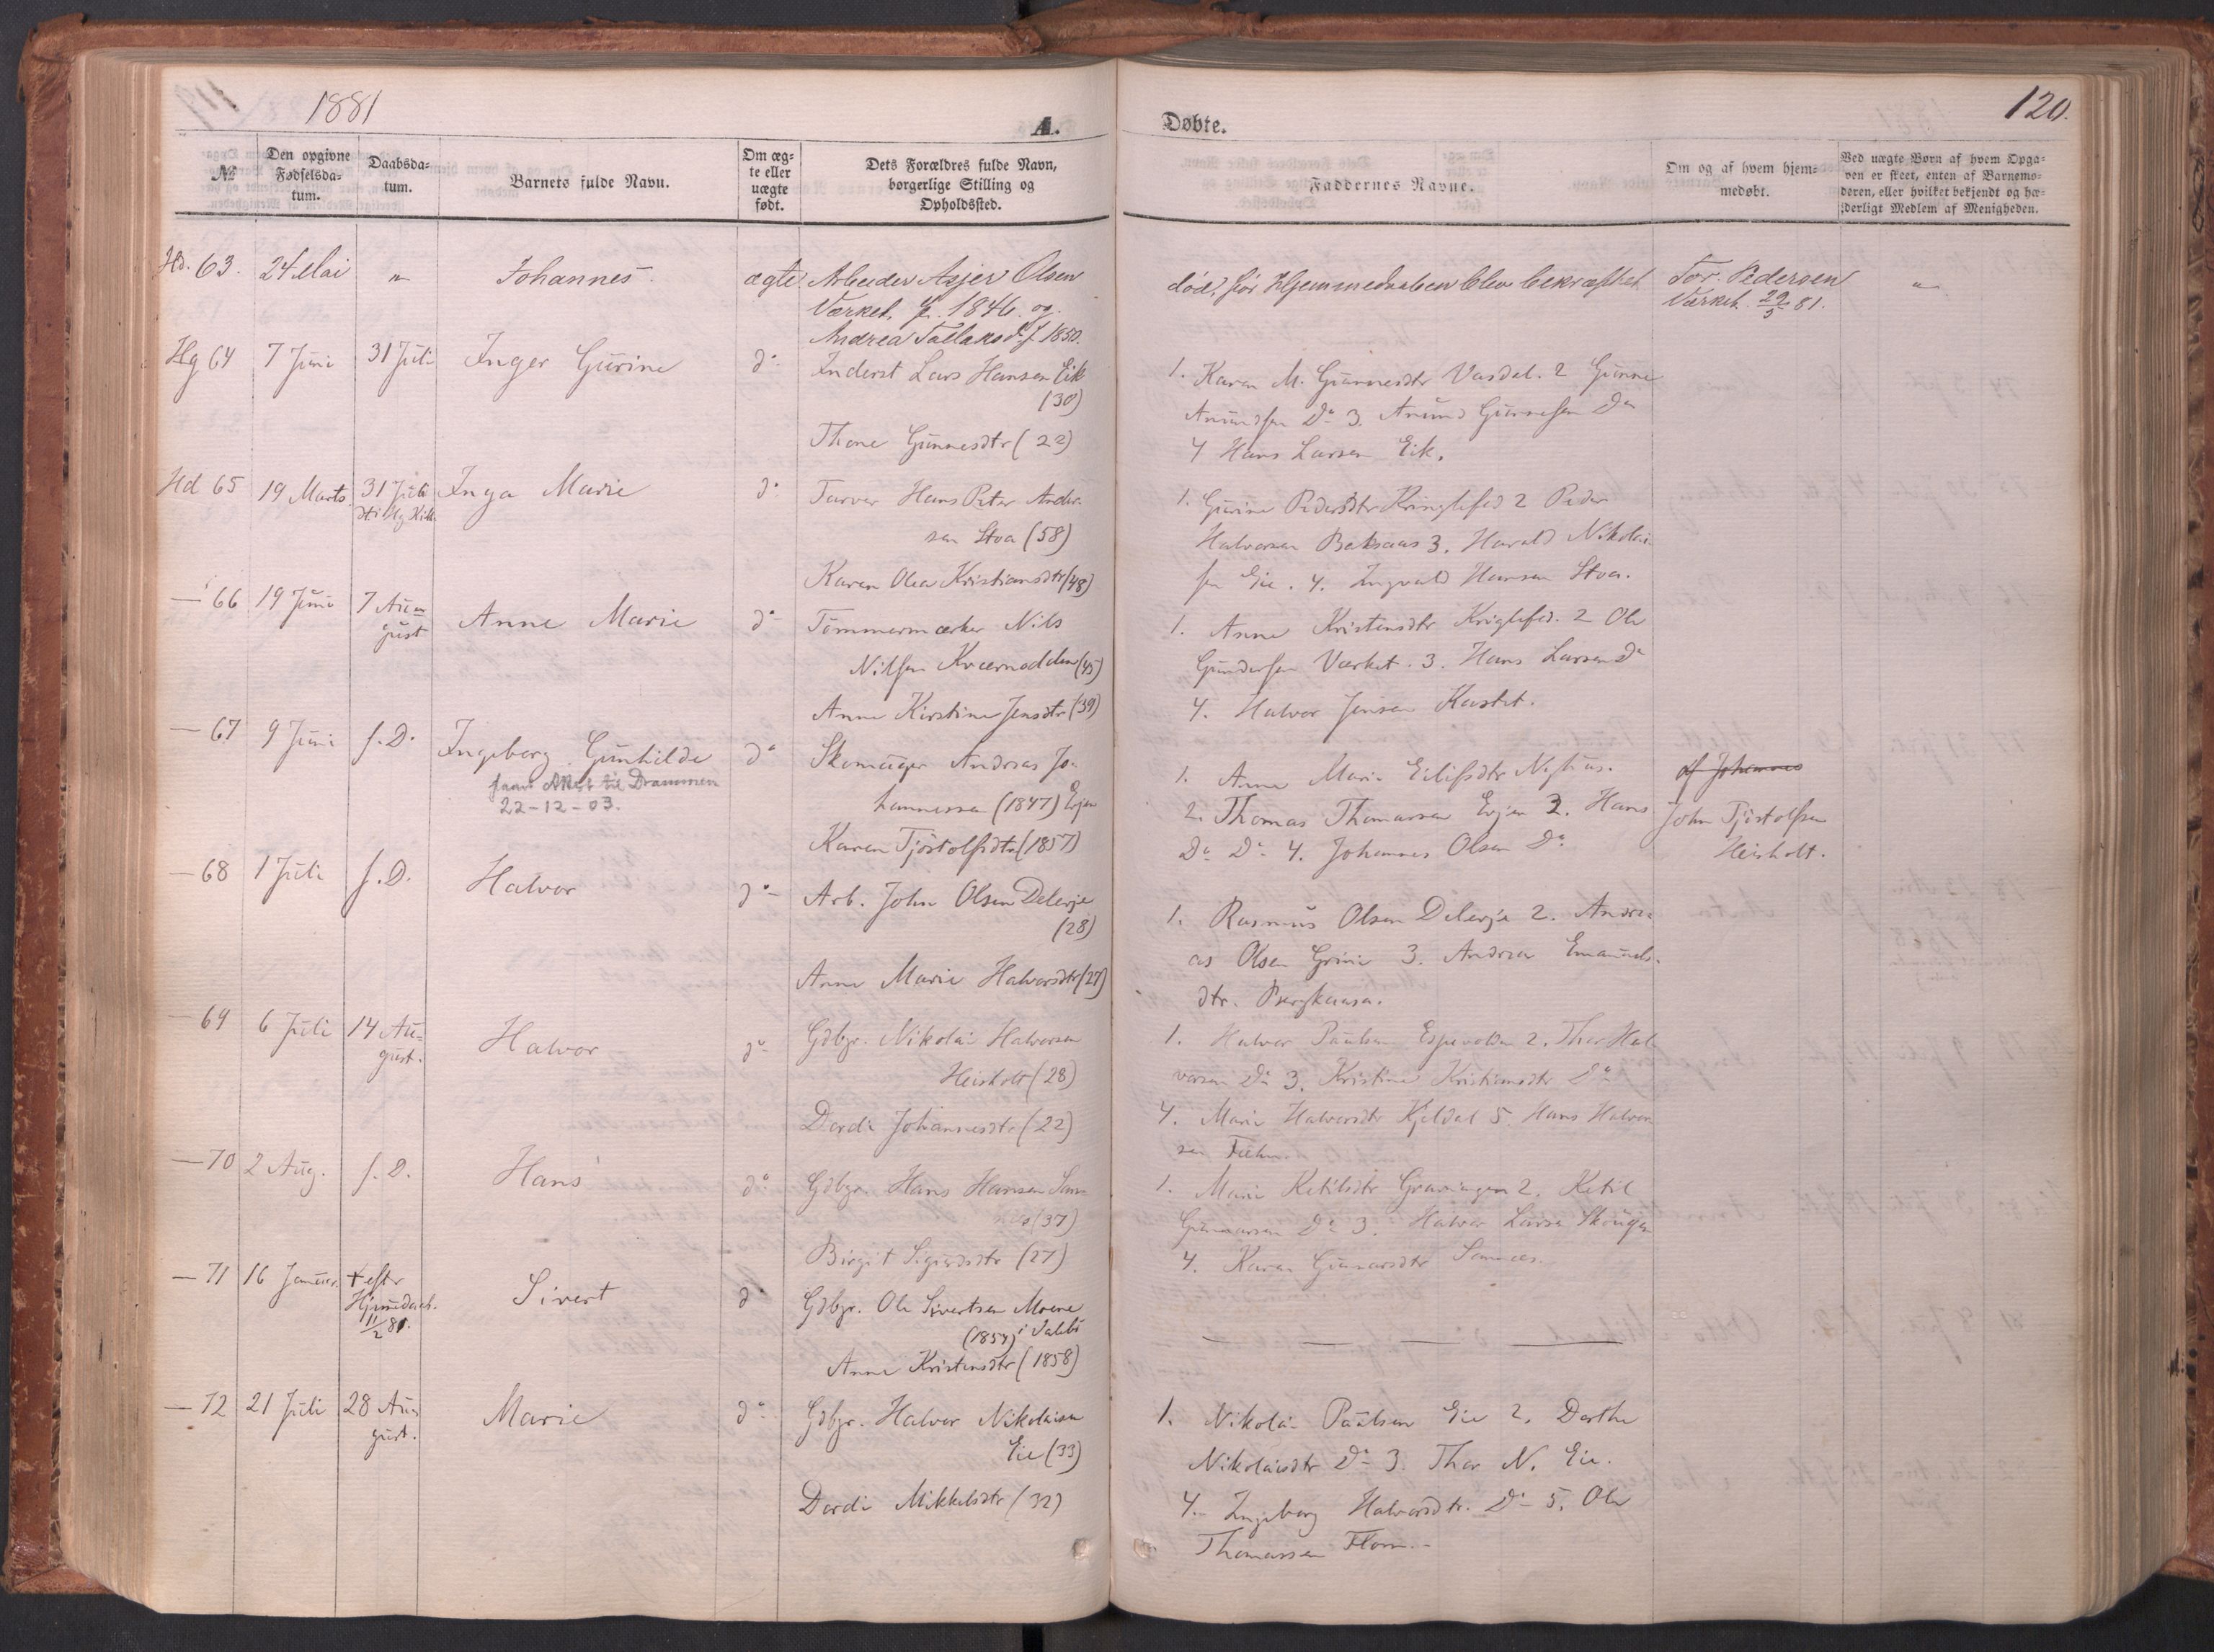 1881
A.
Døbte.
120.
№
Den opgivne
Fødselsda-
tum.
Daabsda-
tum.
Barnets fulde Navn.
Om æg-
te eller
uægte
født.
Dets Forældres fulde Navn,
borgerlige Stilling og
Opholdssted.
Faddernes Navne.
Om og af hvem hjem-
medøbt.
Ved uægte Børn af hvem Opga-
ven er skeet, enten af Barnemo-
deren, eller hvilket bekjendt og hæ-
derligt Medlem af Menigheden.
Hd. 63. 24 Mai " Johannes ægte Arbeider Asjer Olsen
Værket f. 1846. og
Andrea f. 1850.
død, før Hjemmedaaben blev bekræftet
Tor Pedersen
Værket 29/5 81.
"
Hg 64 7 Juni 31 Juli Inger Gurine do Inderst Lars Hansen Eik
(30)
Thone Gunnesdtr (22)
1. Karen M. Gunnesdtr Vasdal. 2 Gunne
Anundsen Do 3. Anund Gunnesen Do
4 Hans Larsen Eik.
Hd 65 19 Marts 31 Juli
Hg Kirk.
Inga Marie do Farver Hans Peter Ander-
sen Stoa (58)
Karen Olea Kristiansdtr (48)
1. Gurine Pedersdtr Kringlefed 2 Peder
Halvorsen Baksaas 3. Harald Nikolai-
sen Eie. 4. Ingvald Hansen Stoa.
— 66 19 Juni 7 Au-
gust
Anne Marie do Tømmermærker Nils
Nilsen Kværnodden (45)
Anne Kirstine Jensdtr (39)
1. Anne Kristensdtr Kriglefed. 2 Ole
Gundersen Værket. 3. Hans Larsen Do
4. Halvor Jensen Kastet.
— 67 9 Juni s. D. Ingeborg Gunhilde
Attest til Drammen
22-12-03.
do Skomager Andreas Jo-
hannessen (1847) Evjen
Karen Tjøstolfsdtr (1857)
1. Anne Marie Eilifsdtr
2. Thomas Thomassen Evjen 3. Hans
Do Do 4. Johannes Olsen Do
af Johannes
John Tjøstolfsen
Heisholt.
— 68 1 Juli s. D. Halvor do Arb. John Olsen Delerje
(28)
Anne Marie Halvorsdtr (27)
1. Rasmus Olsen Delerje 2. Andre-
as Olsen Grini 3. Andrea Emanuels-
dtr.
— 69 6 Juli 14 Au-
gust.
Halvor do Gdbgr. Nikolai Halvorsen
Heisholt (28)
Dordi Johannesdtr (22)
1. Halvor Paulsen Espevolden 2. Thor Hal
vorsen Do 3. Kristine Kristiansdtr Do
4. Marie Halvorsdtr Kjeldal 5. Hans Halvor
sen
— 70 2 Aug. s. D. Hans do Gdbgr. Hans Hansen
(37)
Birgit Sigurdsdtr (27)
1. Marie Ketilsdtr Gravningen 2. Ketil
Gunnarsen Do 3. Halvor Larsen Skougen
4. Karen Gunnarsdtr
— 71 16 Januar. † efter
Hjemmedaab.
11/2 81.
Sivert do Gdbgr. Ole Sivertsen Moene
(1854) i Valebø
Anne Kristensdtr (1858)
— 72 21 Juli 28 Au-
gust.
Marie do Gdbgr. Halvor Nikolaisen
Eie (33)
Dordi Mikkelsdtr (32)
1. Nikolai Paulsen Eie 2. Dorthe
Nikolaisdtr Do 3. Thor N. Eie.
4. Ingeborg Halvorsdtr. Do 5. Ole
Thomassen Flom.